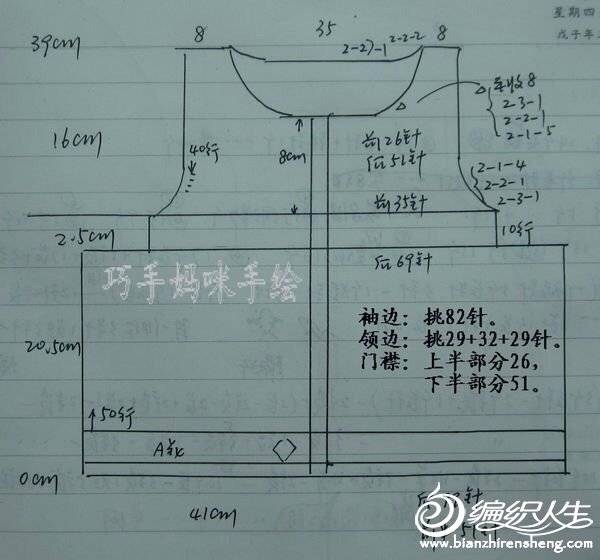 星期四
戊子年
39cm
8
35
8
2-2)-1 2-2-2
平收8
2-3-1
2-2-1
2-1-5
16cm
40行
8cm
前26针
后51针
2-1-4
2-2-1
2-3-1
前35针
2.5cm
10行
后69针
巧手妈咪手绘
袖边:挑82针。
领边:挑29+32+29针。
门襟:上半部分26,
下半部分51。
20.5cm
50行
A针
0cm
41cm
编织人生
www.bianzhirensheng.com